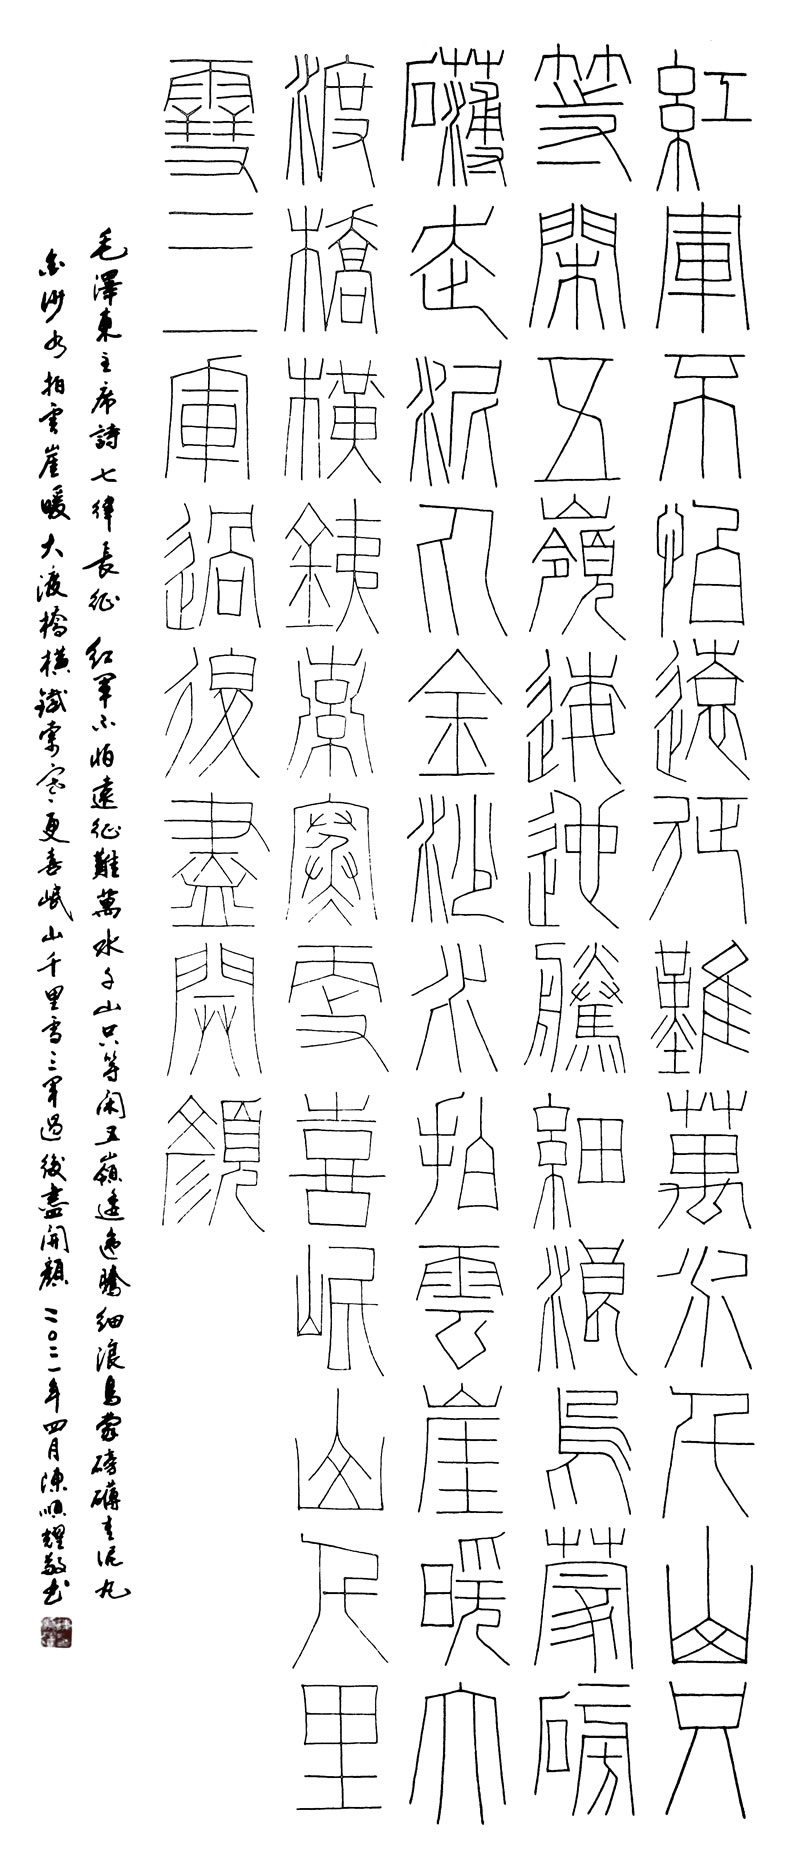 紅軍不怕遠征難萬水千山只
等閑五嶺逶迤騰細浪烏蒙磅
礴走泥丸金沙水拍雲崖暖大
渡橋橫鐵索寒更喜岷山千里
雪三軍過後盡開顏
毛澤東主席詩七律長征 紅軍不怕遠征難萬水千山只等闲五嶺逶迤騰細浪烏蒙磅礴走泥丸
金沙水拍雲崖暖大渡橋橫鐵索寒更喜岷山千里雪三軍過後盡開顏 二〇二一年四月陳順耀敬书